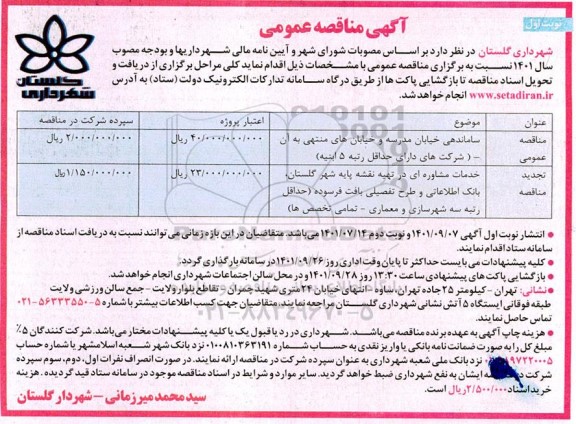 نوبت اول
آگهی مناقصه عمومی
گلستان
شهرداری
شهرداری گلستان در نظر دارد بر اساس مصوبات شورای شهر و آیین نامه مالی شهرداریها و بودجه مصوب
سال ۱۴۰۱ نسبت به برگزاری مناقصه عمومی با مشخصات ذیل اقدام نماید کلی مراحل برگزاری از دریافت و
تحویل اسناد مناقصه تا بازگشایی پاکت ها از طریق درگاه سامانه تدارکات الکترونیک دولت (ستاد) به آدرس
www.setadiran.ir انجام خواهد شد.
عنوان موضوع اعتبار پروژه سپرده شرکت در مناقصه
مناقصه عمومی ساماندهی خیابان مدرسه و خیابان های منتهی به آن ۴۰/۰۰۰/۰۰۰/۰۰۰ ریال ۲/۰۰۰/۰۰۰/۰۰۰ ریال
– ( شرکت های دارای حداقل رتبه ۵ ابنیه)
تجدید مناقصه خدمات مشاوره ای در تهیه نقشه پایه شهر گلستان، ۲۳/۰۰۰/۰۰۰/۰۰۰ ریال ۱/۱۵۰/۰۰۰/۰۰۰ ریال
بانک اطلاعاتی و طرح تفصیلی بافت فرسوده (حداقل
رتبه سه شهرسازی و معماری - تمامی تخصص ها)
● انتشار نوبت اول آگهی ۱۴۰۱/۰۹/۰۷ و نوبت دوم ۱۴۰۱/۰۷/۱۴ می باشد. متقاضیان در این بازه زمانی می توانند نسبت به دریافت اسناد مناقصه از
سامانه ستاد اقدام نمایند.
● کلیه پیشنهادات می بایست حداکثر تا پایان وقت اداری روز ۱۴۰۱/۰۹/۲۶ در سامانه بارگذاری گردد.
● بازگشایی پاکت های پیشنهادی ساعت ۱۳:۳۰ روز ۱۴۰۱/۰۹/۲۸ و در محل سالن اجتماعات شهرداری انجام خواهد شد.
● نشانی: تهران - کیلومتر ۲۵ جاده تهران، ساوه - انتهای خیابان ۲۴ متری شهید چمران - تقاطع بلوار ولایت - جمع سالن ورزشی ولایت
طبقه فوقانی ایستگاه ۵ آتش نشانی شهرداری گلستان مراجعه نمایند. متقاضیان جهت کسب اطلاعات بیشتر با شماره ۵-۵۶۳۳۳۵۵۰-۰۲۱
تماس حاصل نمایند.
● هزینه چاپ آگهی به عهده برنده مناقصه می باشد. شهرداری در رد یا قبول یک یا کلیه پیشنهادات مختار می باشد. شرکت کنندگان ۵٪
مبلغ کل را به صورت ضمانت نامه بانکی یا واریز نقدی به حساب شماره ۰۱۰۰۸۱۰۳۶۳۱۹۱ نزد بانک شهر شعبه اسلامشهر یا شماره حساب
نزد بانک ملی شعبه شهرداری به عنوان سپرده شرکت در مناقصه ارائه نمایند. در صورت انصراف نفرات اول، دوم، سوم سپرده
شرکت در ایشان به نفع شهرداری ضبط خواهد گردید. سایر موارد و شرایط در اسناد مناقصه موجود در سامانه ستاد قید گردیده. هزینه
خرید اسناد ۲/۵۰۰/۰۰۰ ریال است.
سید محمد میرزمانی - شهردار گلستان
۰۲۱-۸۸۳۴۹۶۷۰-۵